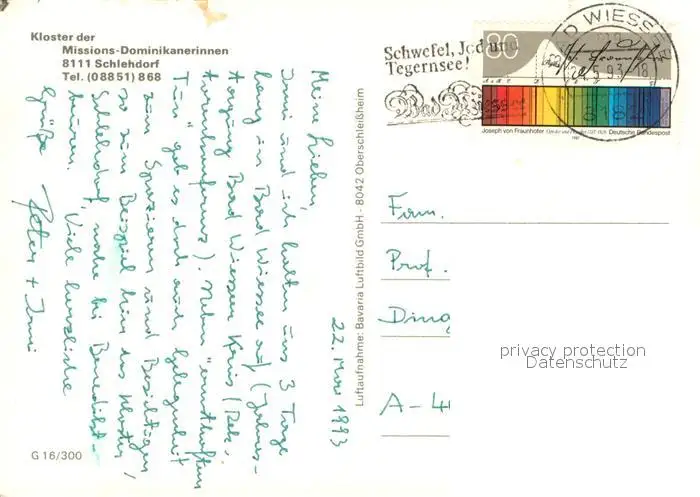 Kloster der
Missions-Dominikanerinnen
8111 Schlehdorf
Tel. (08851) 868
Schwefel, Jod und
Tegernsee!
Bad Wiessee
D WIESSEE
80
Joseph von Fraunhofer
Deutsche Bundespost
22. Mai 1993
Meine Lieben,
Irmi und ich halten uns 3 Tage
lang in Bad Wiessee auf (Jahres-
tagung Bad Wiesseer Kreis (
). Neben "ernsthaftem
Tun" gab es doch auch Gelegenheit
zum Spazieren und Besichtigen
so zum Beispiel hier das Kloster
Schlehdorf, nahe bei Benedikt-
beuren. Viele herzliche
Grüße Peter + Irmi
Luftaufnahme: Bavaria Luftbild GmbH - 8042 Oberschleißheim
Fam.
Prof.
Ding
A-4
privacy protection
Datenschutz
G 16/300